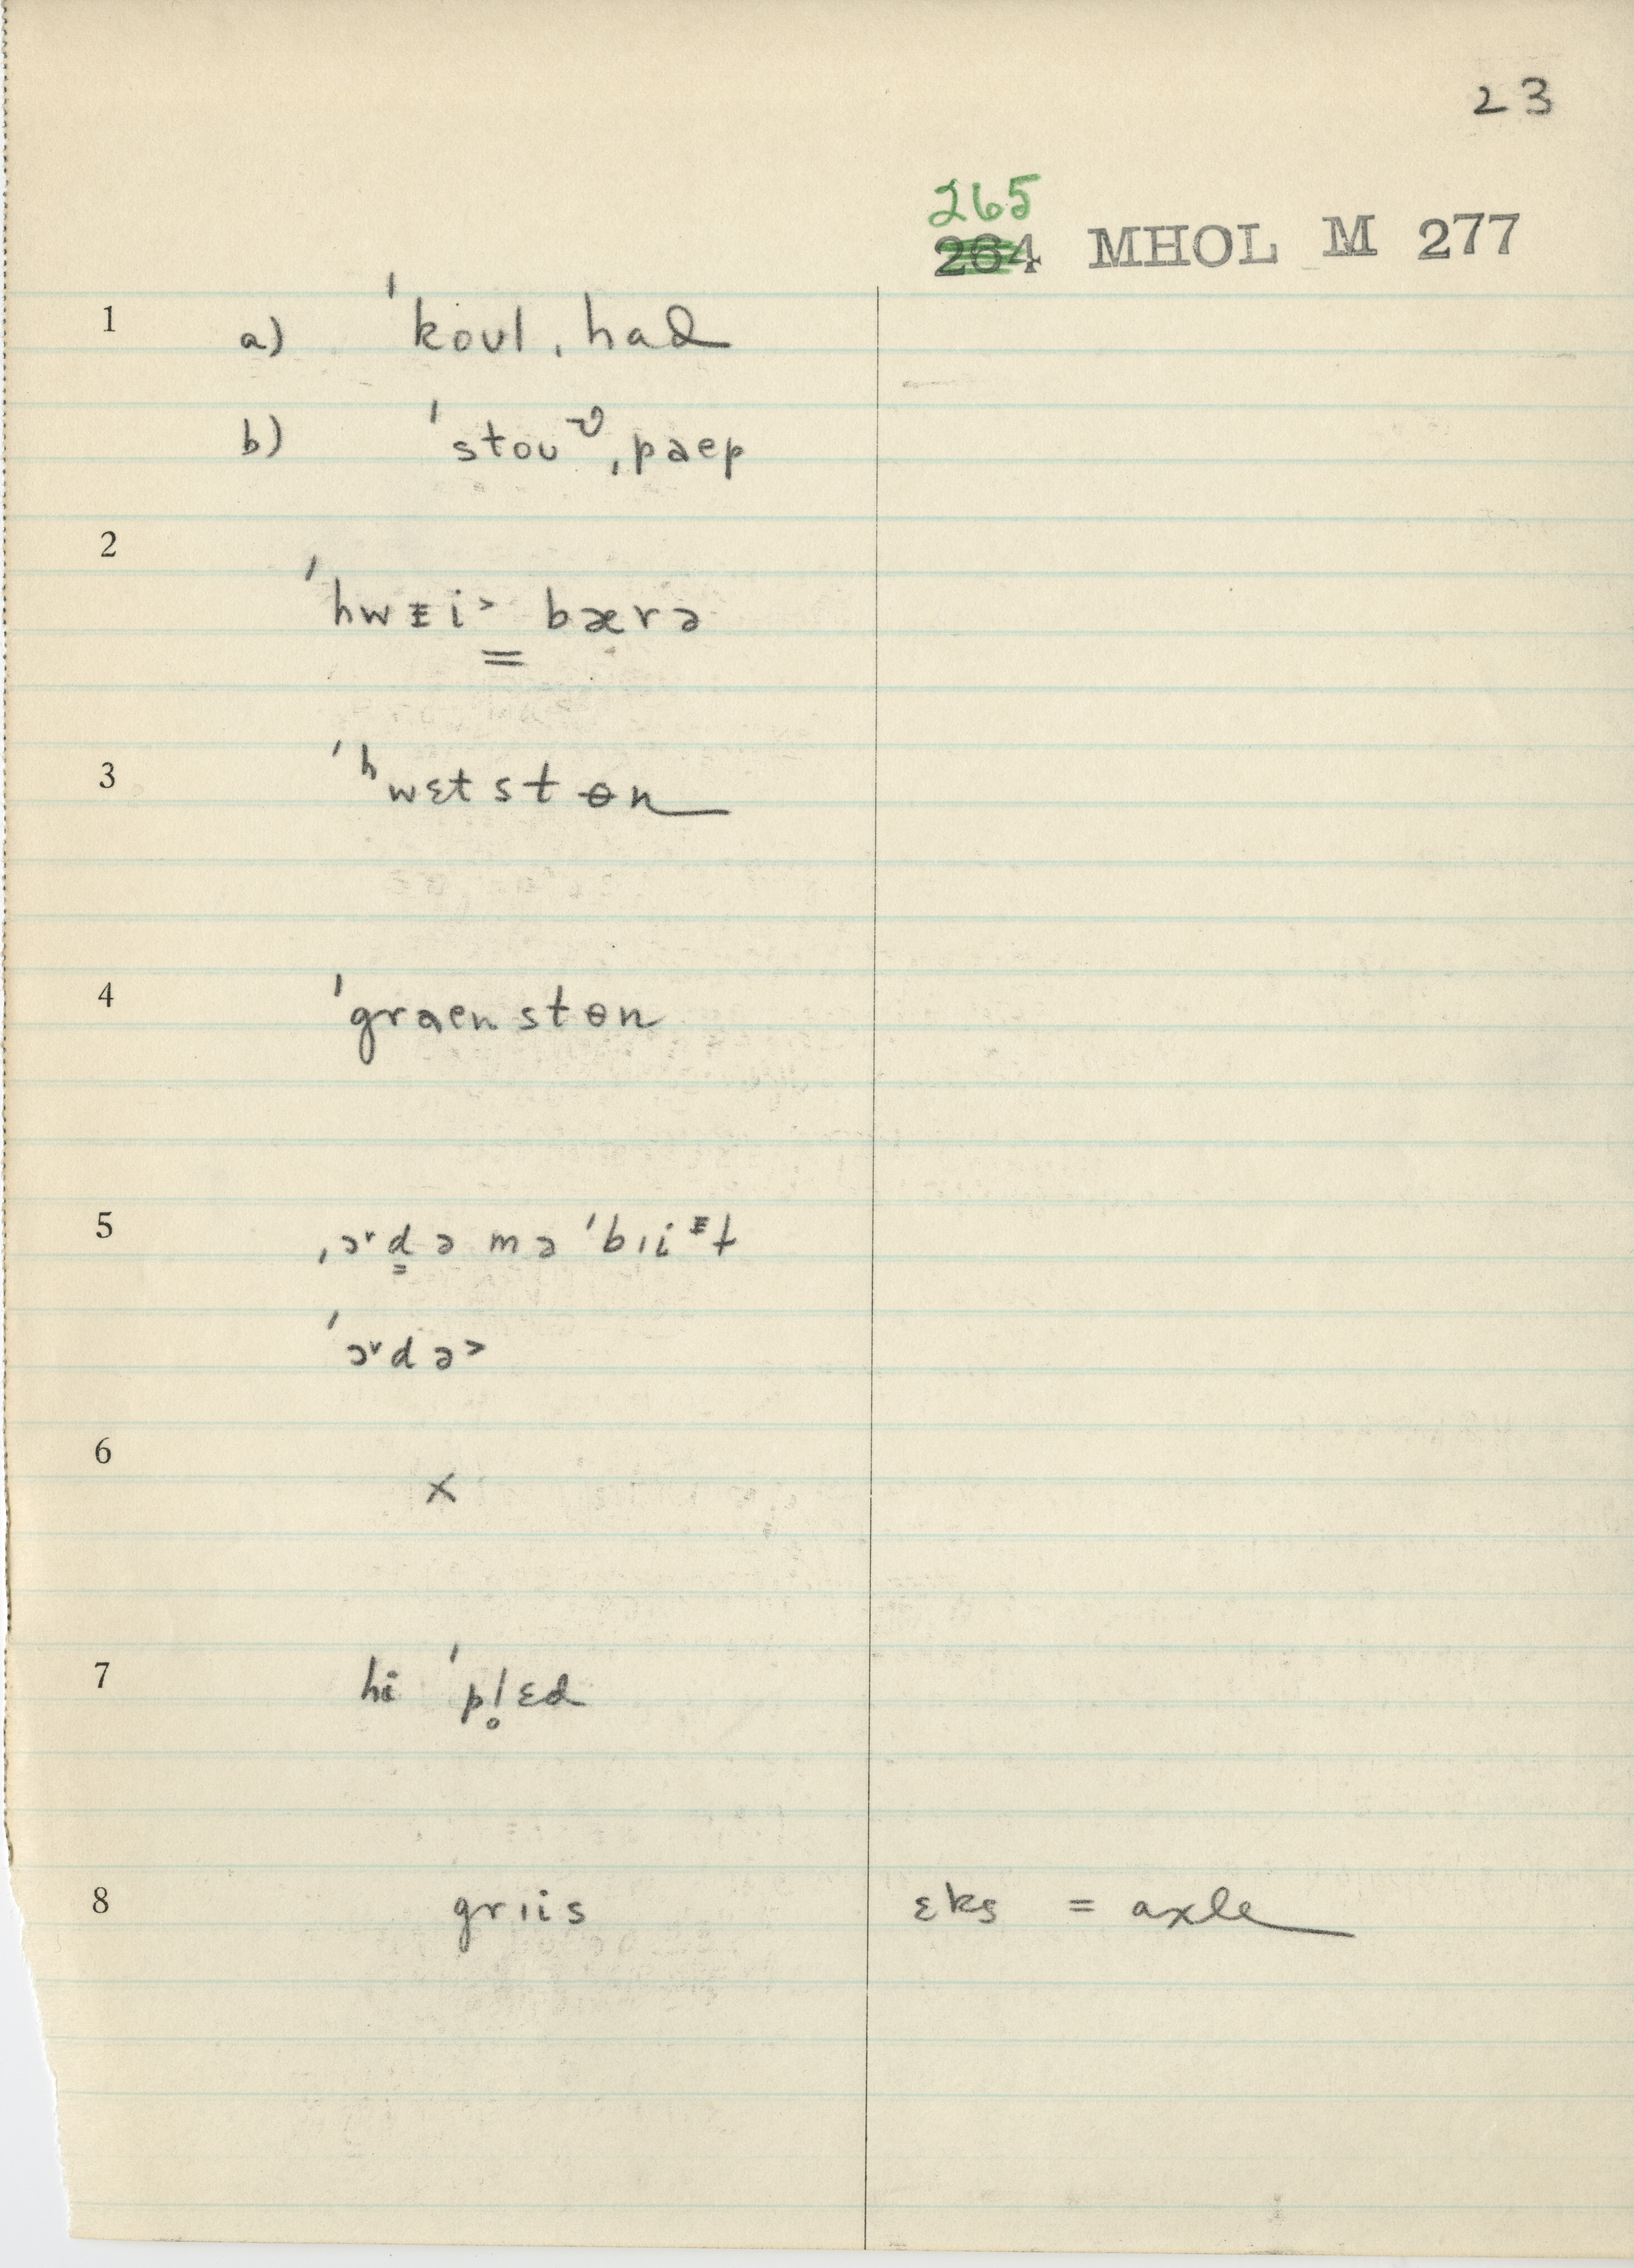 23
265
264 MHOL M 277
1 a) ˈkoʊl ˌhad
b) ˈstoʊᶹ ˌpaep
2
ˈhwᵻi˃ bærə
3 ˈʰwɛtstɵn
4 ˈgraenstɵn
5 ˌɚd̳ə mə ˈbɪiᵻt
ˈɚdə˃
6
x
7 hi ˈpl̥ɛd
8 grɪis ɛks = axle